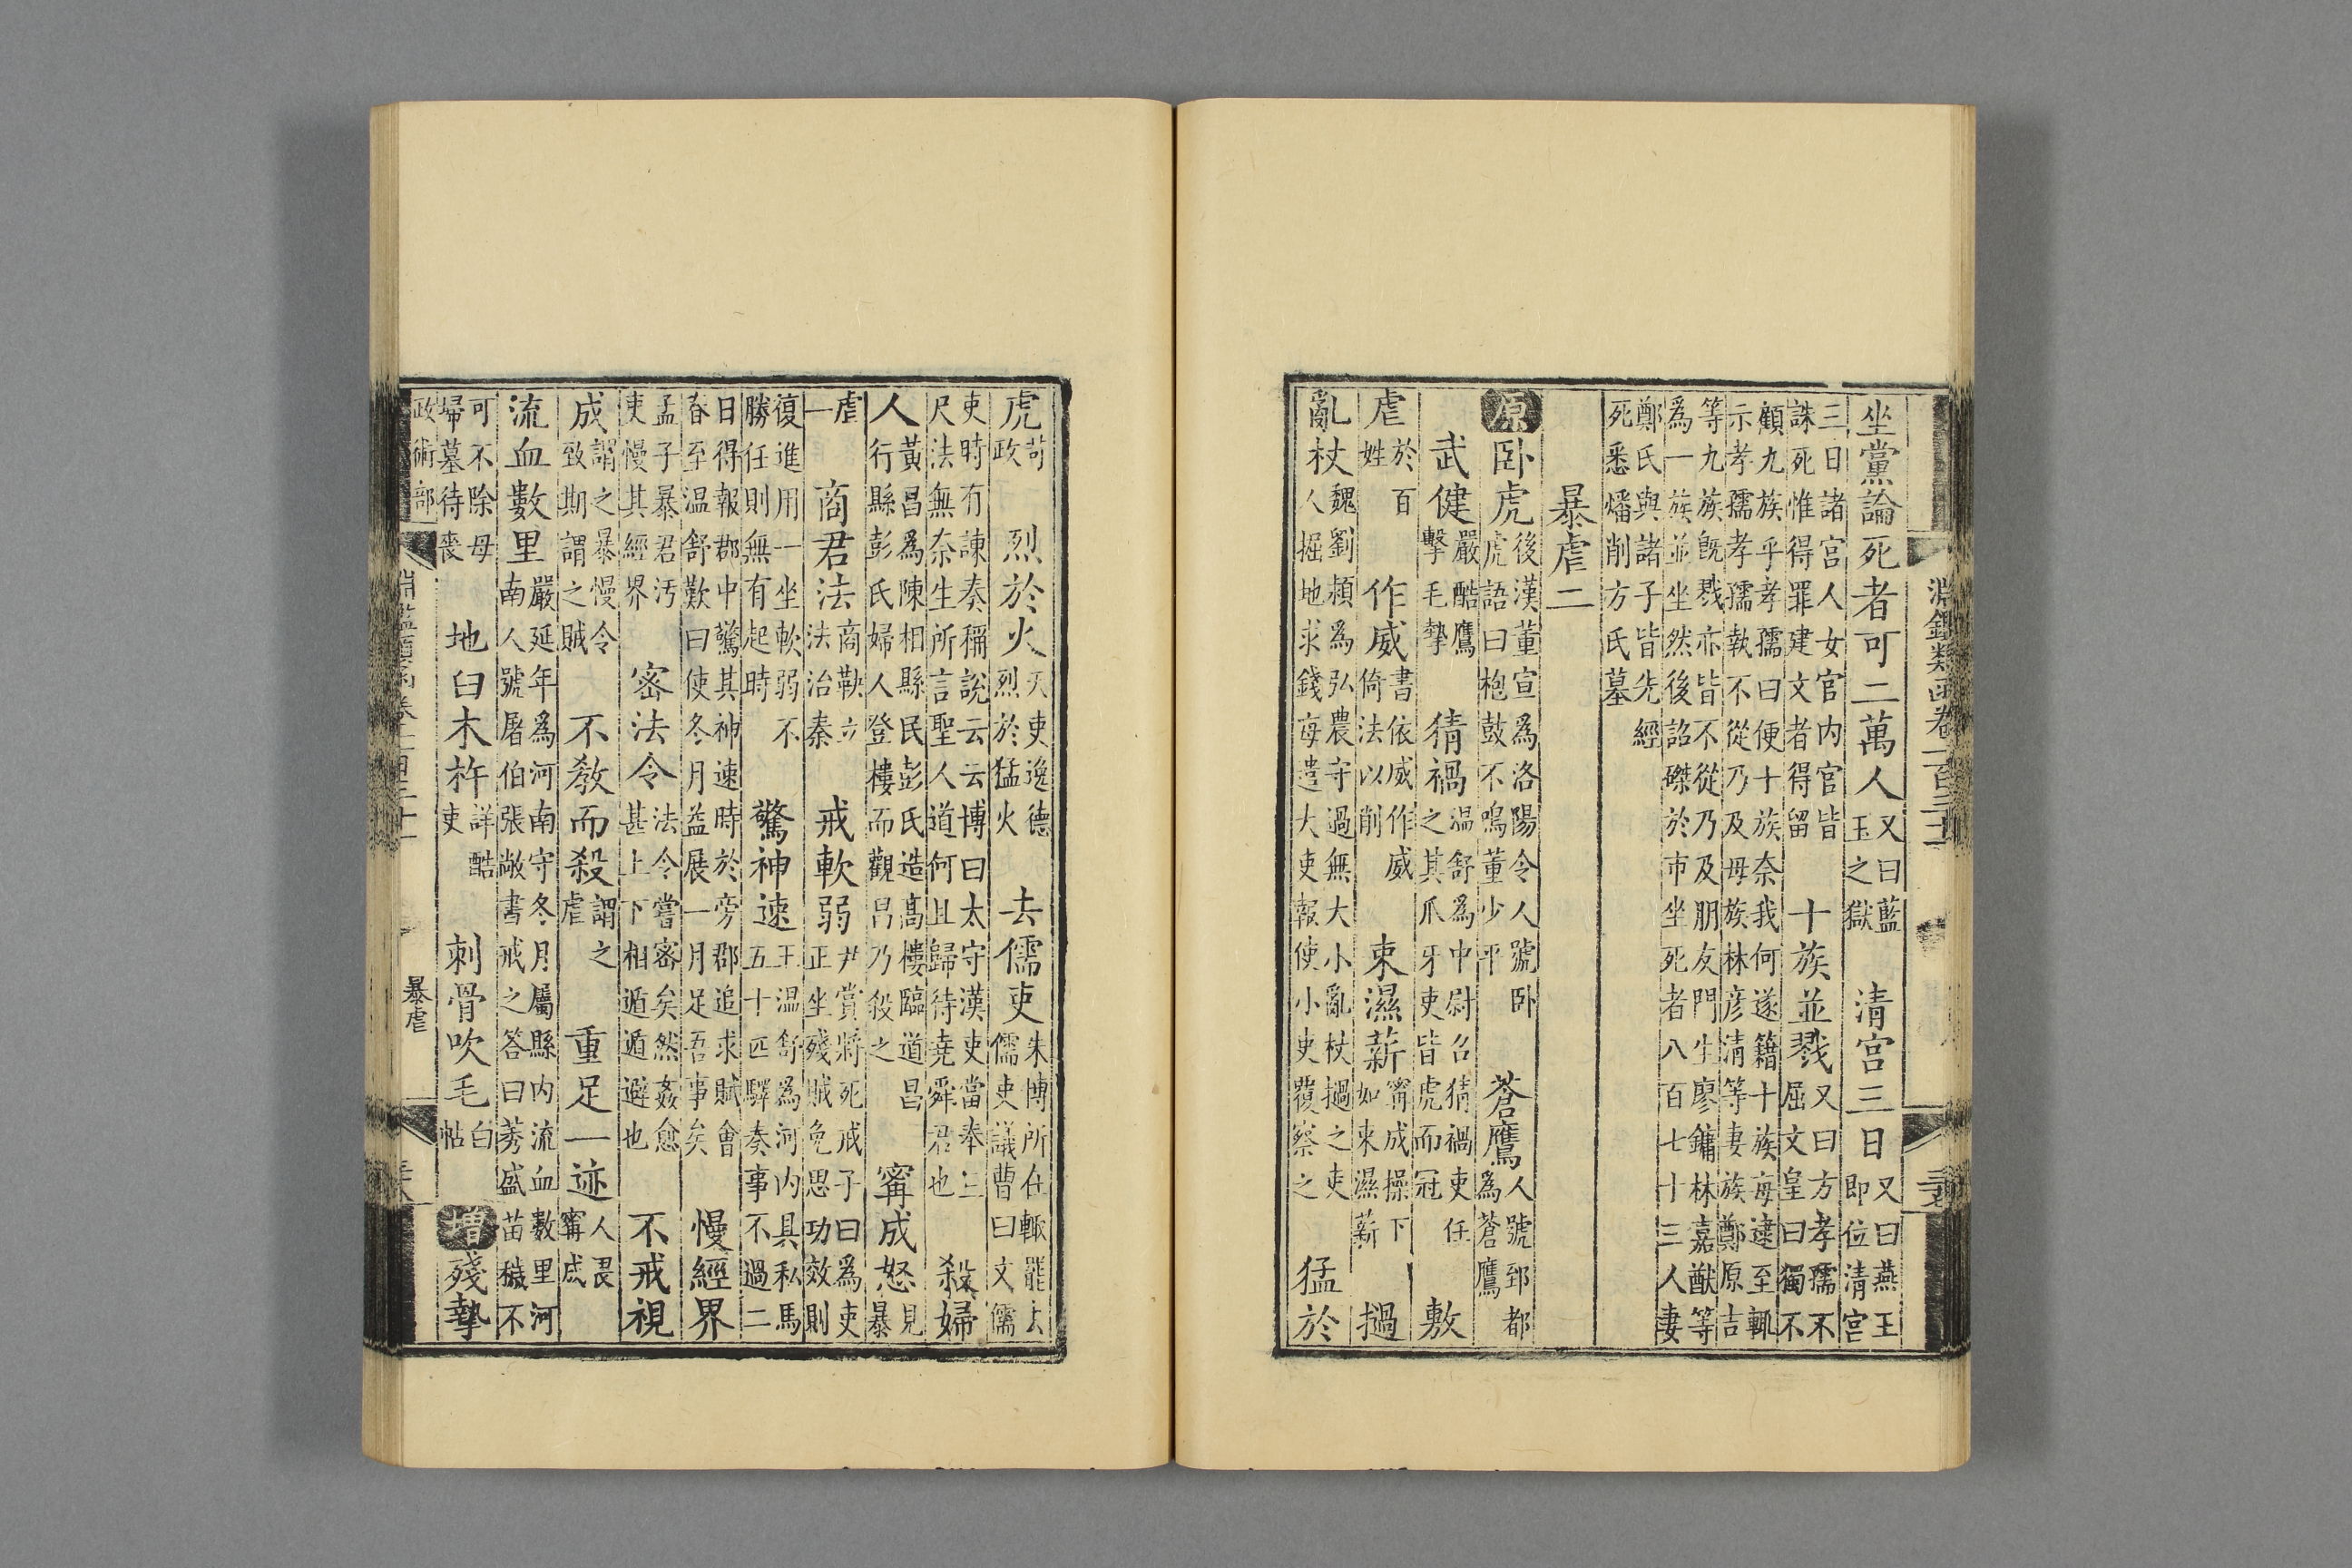 淵鑑類函卷一百二十
坐黨論死者可二萬人又曰藍玉之獄 清宮三日又曰燕王即位清宮
三日諸宮人女官内官皆誅死惟得罪建文者得留 十族並戮又曰方孝孺不屈文皇曰獨不
顧九族乎孝孺曰便十族奈我何遂籍十族每逮至輒示孝孺孝孺執不從乃及母族林彦清等妻族鄭原吉
等九族旣戮亦皆不從乃及朋友門生廖鏞林嘉猷等爲一族並坐然後詔磔於市坐死者八百七十三人妻
鄭氏與諸子皆先經死悉燔削方氏墓
暴虐二
原卧虎後漢董宣爲洛陽令人號卧虎語曰枹鼓不鳴董少平 蒼鷹人號郅都爲蒼鷹
武健嚴酷鷹擊毛摯 猜禍温舒爲中尉召猜禍吏任之其爪牙吏皆虎而冠 敷
虐於百姓 作威書依威作威倚法以削 束濕薪甯成操下如束濕薪 撾
亂杖魏劉纇爲弘農守過無大小亂杖撾之吏人掘地求錢每遣大吏報使小吏覆察之 猛於
虎苛政 烈於火天吏逸德烈於猛火 去儒吏朱博所在輒罷去儒吏議曹曰文儒
吏時有諫奏稱說云云博曰太守漢吏當奉三尺法無奈生所言聖人道何且歸待堯舜君也 殺婦
人黃昌爲陳相縣民彭氏造高樓臨道昌行縣彭氏婦人登樓而觀昌乃殺之 甯成怒見暴
虐一 商君法商鞅立法治秦 戒軟弱尹賞將死戒子曰爲吏正坐殘賊免思功效則
復進用一坐軟弱不勝任則無有起時 驚神速王温舒爲河内具私馬五十匹驛奏事不過二
日得報郡中驚其神速時於旁郡追求賊會春至温舒歎曰使冬月益展一月足吾事矣 慢經界
孟子暴君汚吏慢其經界 密法令法令嘗密矣然姦愈甚上下相遁遁避也 不戒視
成謂之暴慢令致期謂之賊 不教而殺謂之虐 重足一迹人畏甯成
流血數里嚴延年爲河南守冬月屬縣内流血數里河南人號屠伯張敞書戒之答曰莠盛苗穢不
可不除母掃墓待喪 地臼木杵詳酷吏 刺骨吹毛白帖 增殘摯
政術部 暴虐